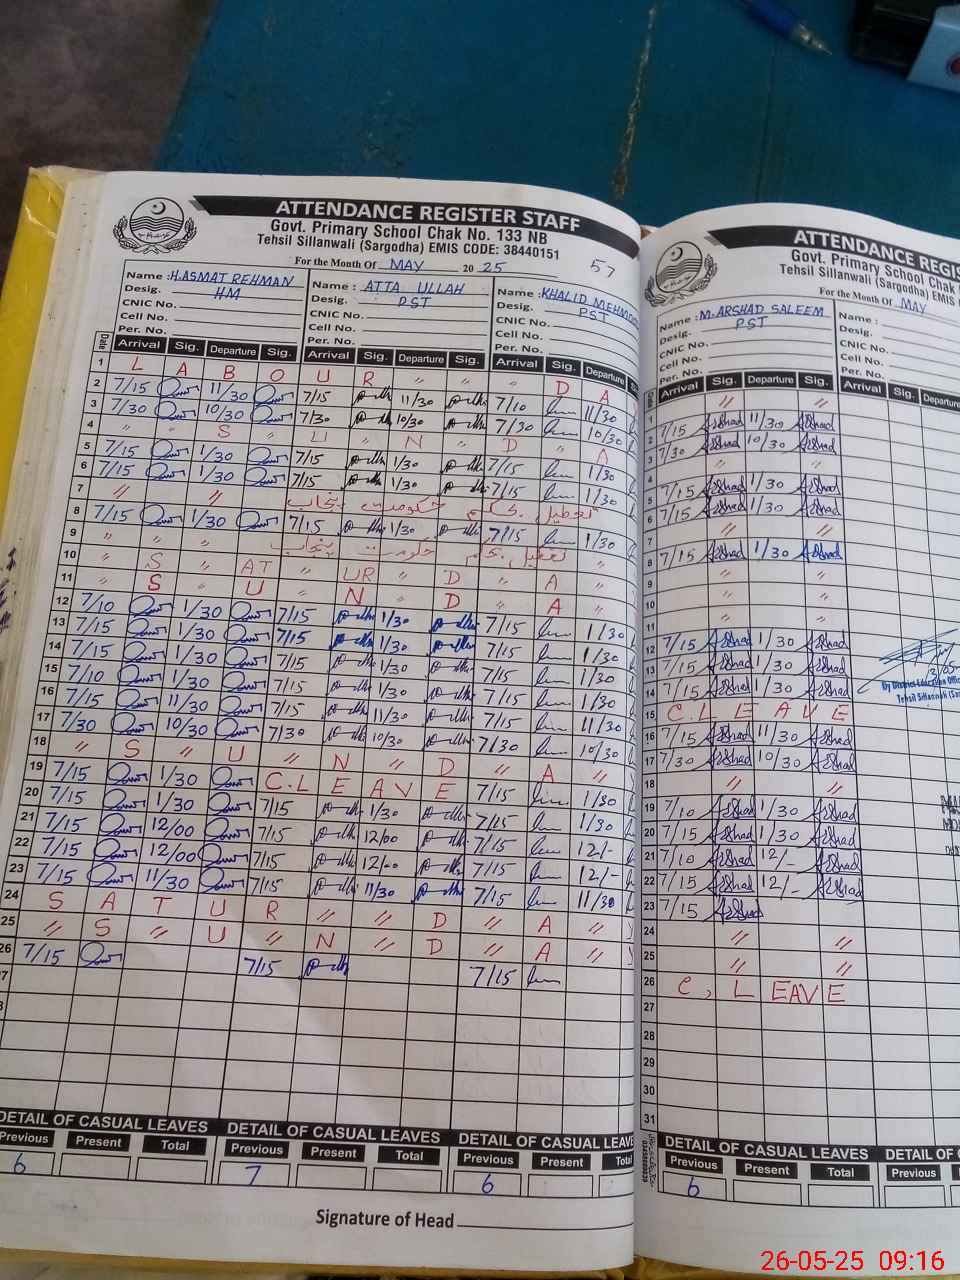 ATTENDANCE REGISTER STAFF
Govt. Primary School Chak No. 133 NB
Tehsil Sillanwali (Sargodha) EMIS CODE: 38440151
For the Month Of MAY 2025
57
Name : H.ASMAT REHMAN Name : ATTA ULLAH Name : KHALID MEHMOOD
Desig. HM Desig. PST Desig. PST
CNIC No. CNIC No. CNIC No.
Cell No. Cell No. Cell No.
Per. No. Per. No. Per. No.
Date Arrival Sig. Departure Sig. Arrival Sig. Departure Sig. Arrival Sig. Departure
1 L A B O U R " " " D A
2 7/15 11/30 7/15 11/30 7/10 11/30
3 7/30 10/30 7/30 10/30 7/30 10/30
4 " " S " U " N " D " A
5 7/15 1/30 7/15 1/30 7/15 1/30
6 7/15 1/30 7/15 1/30 7/15 1/30
7 " " تعطیل بحکم حکومت پنجاب
8 7/15 1/30 7/15 1/30 7/15 1/30
9 " " " تعطیل بحکم حکومت پنجاب
10 " S " AT " UR " D " A "
11 " S " U " N " D " A "
12 7/10 1/30 7/15 1/30 7/15 1/30
13 7/15 1/30 7/15 1/30 7/15 1/30
14 7/15 1/30 7/15 1/30 7/15 1/30
15 7/10 1/30 7/15 1/30 7/15 1/30
16 7/15 11/30 7/15 11/30 7/15 11/30
17 7/30 10/30 7/30 10/30 7/30 10/30
18 " S " U " N " D " A "
19 7/15 1/30 C.L E A V E 7/15 1/30
20 7/15 1/30 7/15 1/30 7/15 1/30
21 7/15 12/00 7/15 12/00 7/15 12/-
22 7/15 12/00 7/15 12/00 7/15 12/-
23 7/15 11/30 7/15 11/30 7/15 11/30
24 S A T U R " " D " A "
25 " S " U " N " D " A "
26 7/15 7/15 7/15
DETAIL OF CASUAL LEAVES DETAIL OF CASUAL LEAVES DETAIL OF CASUAL LEAVES
Previous Present Total Previous Present Total Previous Present Total
6 7 6
Signature of Head
ATTENDANCE REGIS
Govt. Primary School
Tehsil Sillanwali (Sargodha) EMIS
For the Month Of MAY
Name : M. ARSHAD SALEEM Name :
Desig. PST Desig.
CNIC No. CNIC No.
Cell No. Cell No.
Per. No. Per. No.
Arrival Sig. Departure Sig. Arrival Sig. Departure
1 " "
2 7/15 Arshad 11/30 Arshad
3 7/30 Arshad 10/30 Arshad
4 " "
5 7/15 Arshad 1/30 Arshad
6 7/15 Arshad 1/30 Arshad
7 " "
8 7/15 Arshad 1/30 Arshad
9 " "
10 " "
11 " "
12 7/15 Arshad 1/30 Arshad
13 7/15 Arshad 1/30 Arshad
14 7/15 Arshad 1/30 Arshad
Dy District Education Offi
Tehsil Sillanwali (Sar
15 C. L E A V E
16 7/15 Arshad 11/30 Arshad
17 7/30 Arshad 10/30 Arshad
18 " "
19 7/10 Arshad 1/30 Arshad
20 7/15 Arshad 1/30 Arshad
21 7/10 Arshad 12/- Arshad
22 7/15 Arshad 12/- Arshad
23 7/15 Arshad
24 " "
25 " "
26 C, L EAVE
27
28
29
30
31
DETAIL OF CASUAL LEAVES DETAIL OF
Previous Present Total Previous
6
26-05-25 09:16